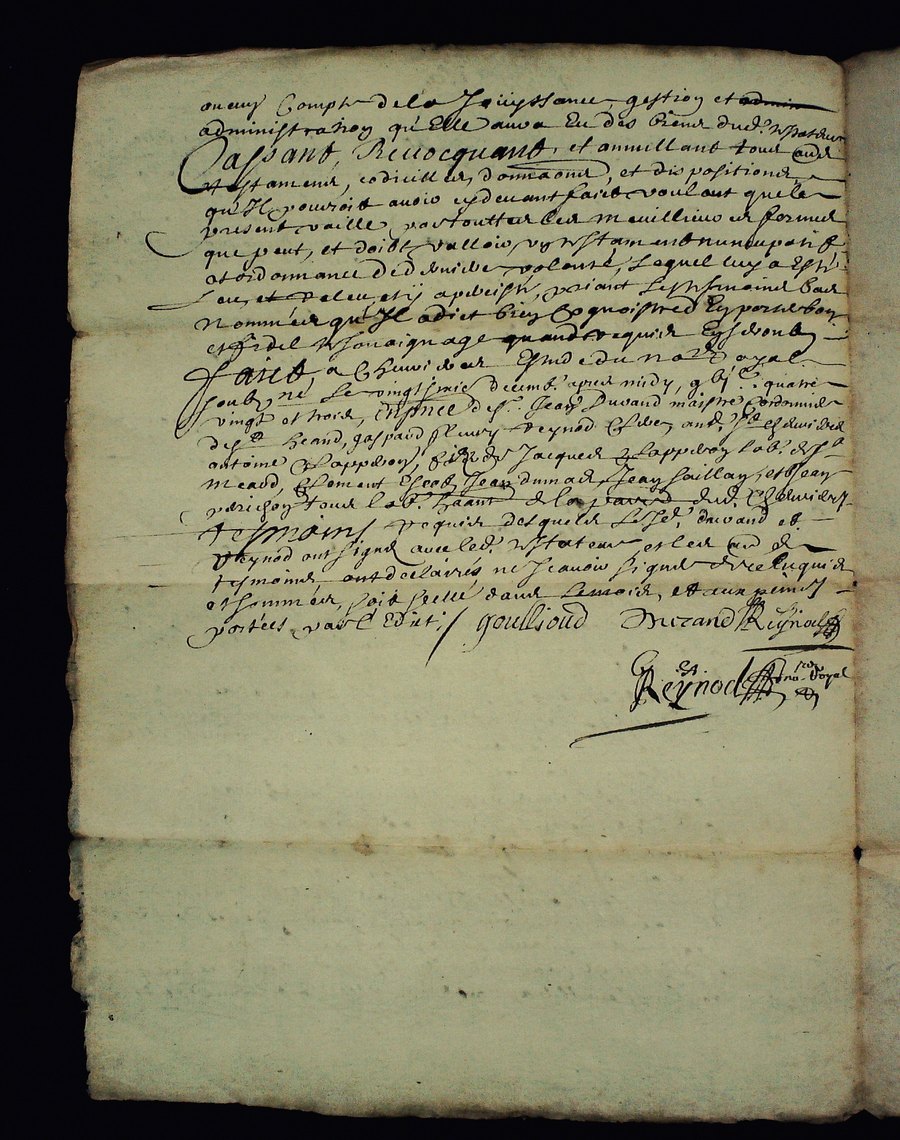 aucuy Compte de la Jouyssance, gestion et admin
administration qu'Elle aura Eu des biens dud. testateur
Cassant, Revocquant, et annullant tous aues
testamens, codicilles, donnaons, et dispositions
qu'Il pourroit avoir cydevant faict voulant que le
present vaille, par toutter les meillieures formes
que peut, et doibt valloir, par testament nuncupatif
et ordonnance de derniere volonté, Lequel luy a Esté
Leu, et releu, et y a persisté, priant Les tesmoins bas
Nommés qu'Il a dict bien Cognoistre d'Ey porter boy
et fidel tesmoignage quand requis Ey seront
faict a Chevrieres Estude du no.re Royal
soub.né Le vingt decemb. apres midy, g bj.c quatre
vingt et trois, En p.nce de s.r Jean Durand maistre
de s.t heand, gaspard fleury reynod Clerc, aud. Chevrieres
antoine Chappeloy, fils de Jacques Chappeloy lab. de s.t
Meard, Clement Escot, Jean dumas, Jean saillay, et Jean
perichoy tous lab.rs de la par.sse dud. Chevrieres
tesmoins requis desquels Lesd. durand et
Reynod ont signé avec led. testateur, et les au.es
tesmoins ont declairés ne scavoir signer de ce Enquis
et sommés, soit scellé dans Le mois, et aux peines
portées par l'Edict / goullioud Durand Reynod
Reynod no.re Royal